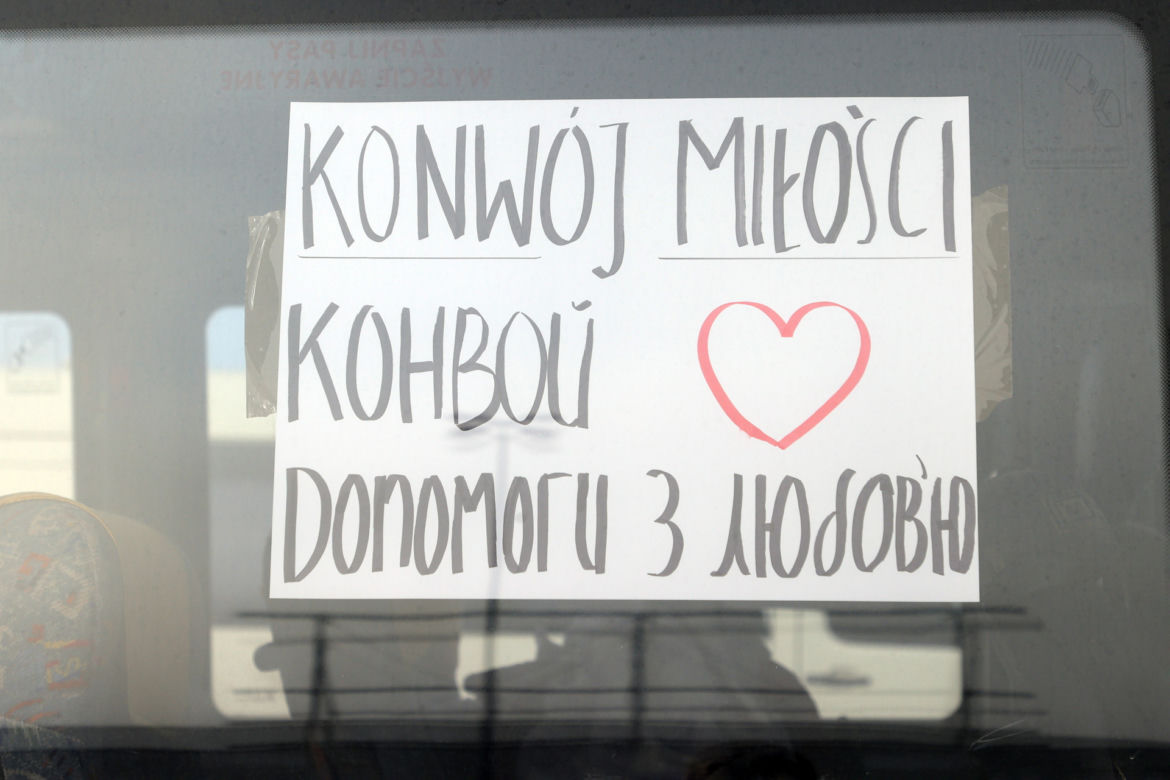 ZAPNIJ PASY
WYJŚCIE AWARYJNE
KONWÓJ MIŁOŚCI
КОНВОЙ
Допомоги З ЛЮбОВ'Ю